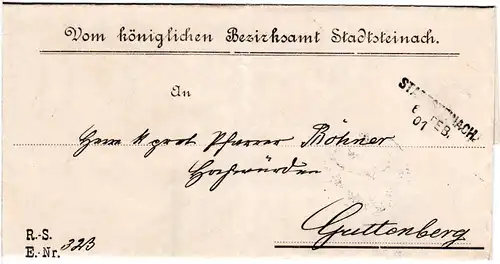 Vom königlichen Bezirksamt Stadtsteinach.
An
STADTSTEINACH.
6 FEB
01
Herrn k. prot. Pfarrer Böhner
Hochwürden
Guttenberg
R.-S.
E.-Nr. 323